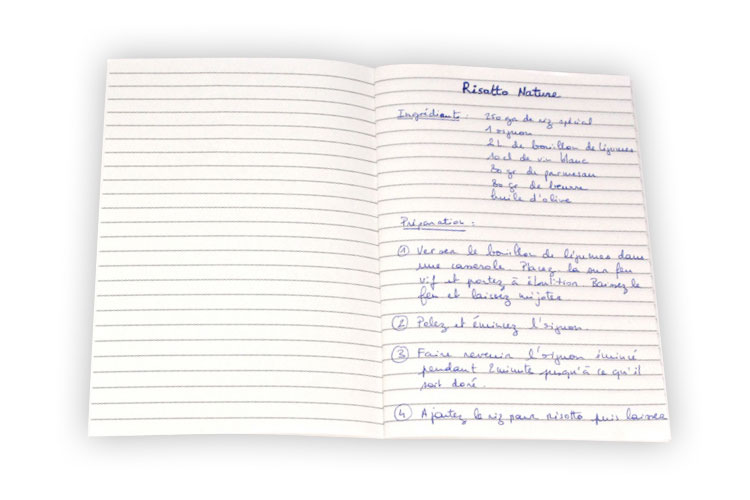 Risotto Nature
Ingrédients : 250 gr de riz spécial
1 oignon
2L de bouillon de légumes
10 cl de vin blanc
80 gr de parmesan
80 gr de beurre
huile d'olive
Préparation :
① Verser le bouillon de légumes dans
une casserole. Placez la sur feu
vif et portez à ébullition. Baissez le
feu et laissez mijoter
② Pelez et émincez l'oignon.
③ Faire revenir l'oignon émincé
pendant 2 minute jusqu'à ce qu'il
soit doré.
④ Ajoutez le riz pour risotto puis laissez